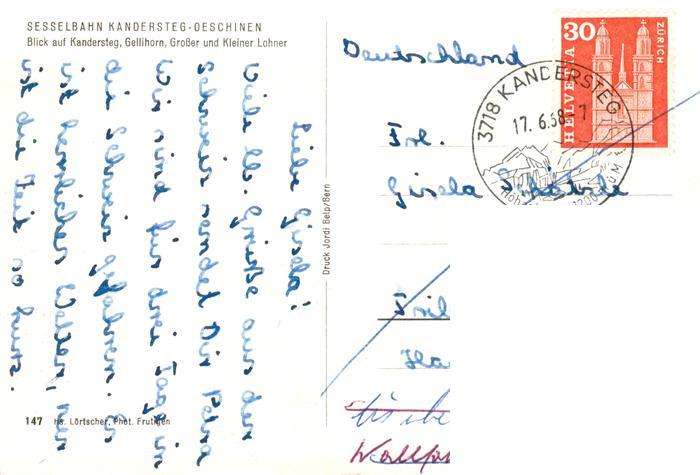 SESSELBAHN KANDERSTEG-OESCHINEN
Blick auf Kandersteg, Gellihorn, Großer und Kleiner Lohner
Liebe Gisela!
Viele lb. Grüße aus der
Schweiz sendet Dir Petra
Wir sind für drei Tage in
die Schweiz gefahren. Es
ist herrliches Wetter, nur
ist die Zeit so kurz.
147 Lörtscher, Phot. Frutigen
Druck Jordi Belp/Bern
Deutschland
Frl.
Gisela
Ha
HELVETIA 30
ZÜRICH
3718 KANDERSTEG
17.6.68-7